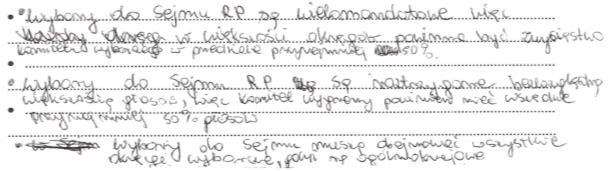 • wybory do Sejmu RP są wielomandatowe więc
w większości okręgów powinno być zwycięstwo
komitetu wyborczego w przedziale przynajmniej 50%.
• wybory do Sejmu RP są rozstrzygane bezwzględną
większością głosów, więc komitet wygrany powinien mieć wszędzie
przynajmniej 50% głosów
• wybory do Sejmu muszą obejmować wszystkie
okręgi wyborcze, są ogólnokrajowe